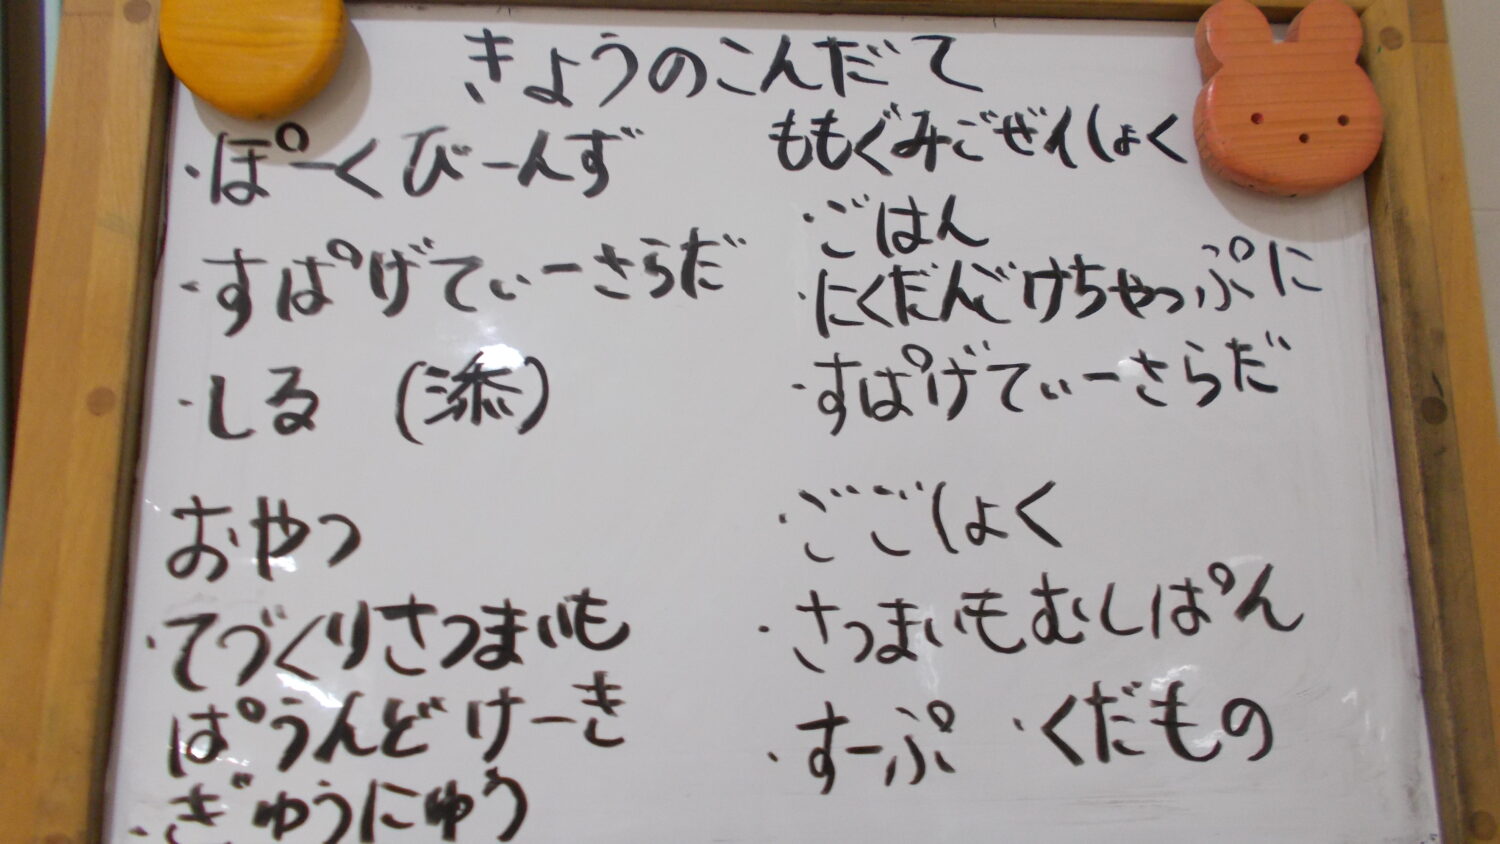 きょうのこんだて
・ぽーくびーんず
・すぱげてぃーさらだ
・しる (添)
おやつ
・てづくりさつまいも
ぱうんどけーき
・ぎゅうにゅう
ももぐみごぜんしょく
・ごはん
・にくだんごけちゃっぷに
・すぱげてぃーさらだ
・ごごしょく
・さつまいもむしぱん
・すーぷ ・くだもの